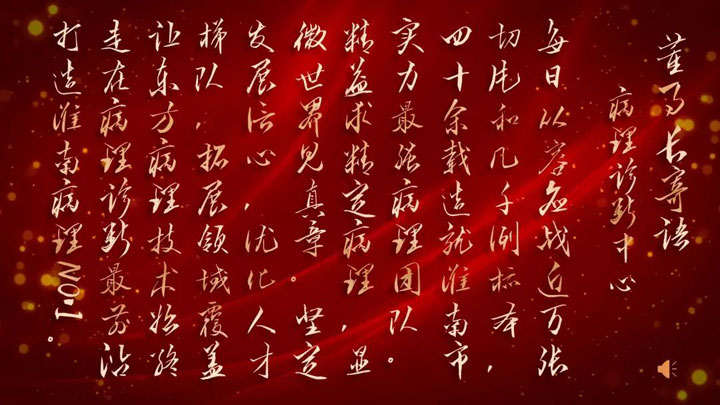 董事长寄语
病理诊断中心
每日以客敌战近万张
切片和几千例标本，
四十余载造就淮南市
实力最强病理团队。
精益求精定病理，显
微世界见真章。坚定
发展信心，优化人才
梯队，拓展领域覆盖
让东方病理技术始终
走在病理诊断最前沿
打造淮南病理NO.1。